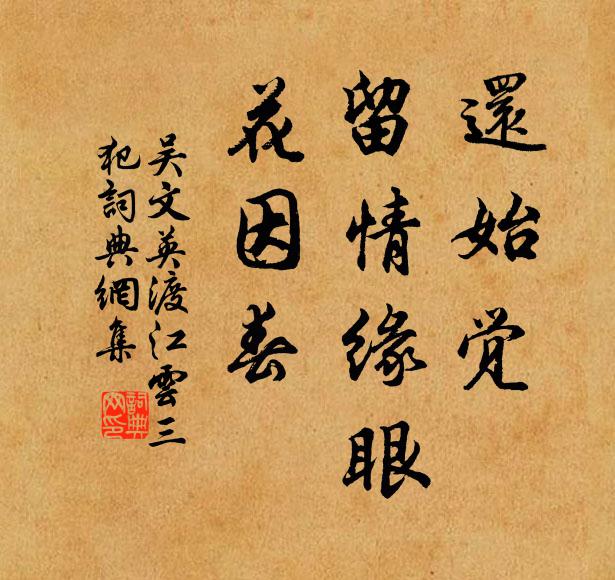 還始觉
留情緣眼
花因春
吴文英渡江雲三
犯詞典網集
詞典网印